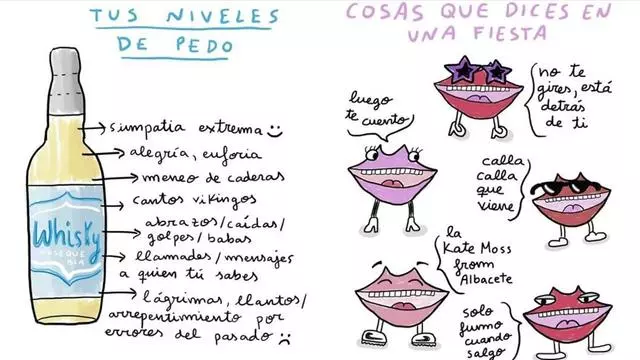 TUS NIVELES
DE PEDO
simpatia extrema
alegría, euforia
meneo de caderas
cantos vikingos
abrazos/caídas/
golpes/babas
llamadas/mensajes
a quien tú sabes
lágrimas, llantos/
arrepentimiento por
errores del pasado
Whisky
COSAS QUE DICES EN
UNA FIESTA
no te
gires, está
detrás
de ti
luego
te cuento
calla
calla
que
viene
la
Kate Moss
from
Albacete
solo
fumo
cuando
salgo